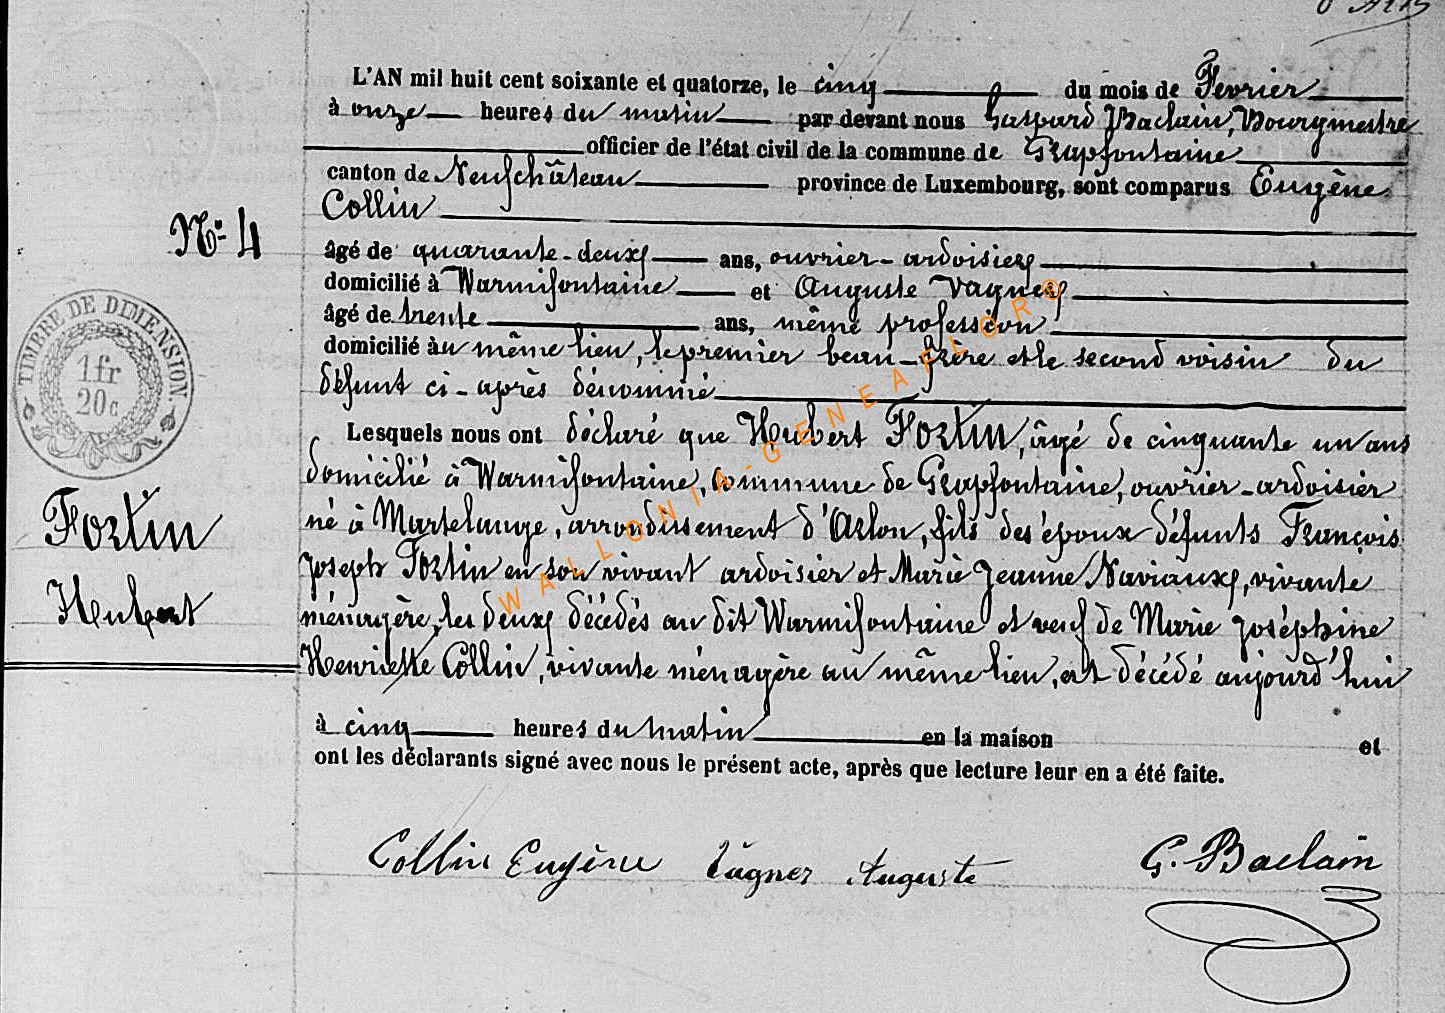 L'AN mil huit cent soixante et quatorze, le cinq du mois de Fevrier
à onze heures du matin par devant nous Gaspard Baclain, Bourgmestre
officier de l'état civil de la commune de Grapfontaine
canton de Neufchâteau province de Luxembourg, sont comparus Eugène
Collin
N° 4
âgé de quarante-deux ans, ouvrier-ardoisier
domicilié à Warmifontaine et Auguste Vagner
âgé de trente ans, même profession
domicilié au même lieu, le premier beau-frère et le second voisin du
défunt ci-après dénommé
TIMBRE DE DIMENSION
1 fr
20 c
Lesquels nous ont déclaré que Hubert Fortin, âgé de cinquante un ans
domicilié à Warmifontaine, commune de Grapfontaine, ouvrier-ardoisier
né à Martelange, arrondissement d'Arlon, fils des époux défunts François
Joseph Fortin en son vivant ardoisier et Marie Jeanne Naviaux, vivante
ménagère, les deux décédés au dit Warmifontaine et veuf de Marie Joséphine
Henriette Collin, vivante ménagère au même lieu, est décédé aujourd'hui
Fortin
Hubert
à cinq heures du matin en la maison et
ont les déclarants signé avec nous le présent acte, après que lecture leur en a été faite.
Collin Eugène Vagner Auguste G. Baclain
WALLONIA-GENEAFLOR©